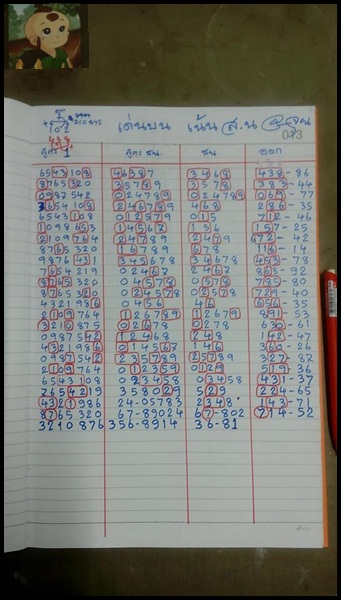 เด่นบน เน้น ส.น
043
สูตร 1 สูตร ชน ชน ออก
6543108 46387 3468 438-86
8765320 35789 3578 383-44
0987542 024789 024789 069-77
3654108 246789 468 286-35
6543108 012579 015 712-46
1098653 14567 156 157-25
2109764 24789 2479 672-42
8765320 16789 678 116-14
9876431 345678 34678 453-78
7654219 02467 2467 863-92
8765320 04578 0578 785-80
8765320 024578 02578 729-40
4321986 0456 46 656-35
2109764 126789 12679 891-53
3210875 02678 0278 630-61
0987542 12468 248 142-47
4321986 014567 146 360-26
0987542 235789 25789 327-87
2109764 012359 0129 519-36
6543108 023458 03458 431-37
7654219 358029 529 224-65
4321986 24-05783 2348 143-71
8765320 67-89024 67-802 714-52
3210876 356-8914 36-81